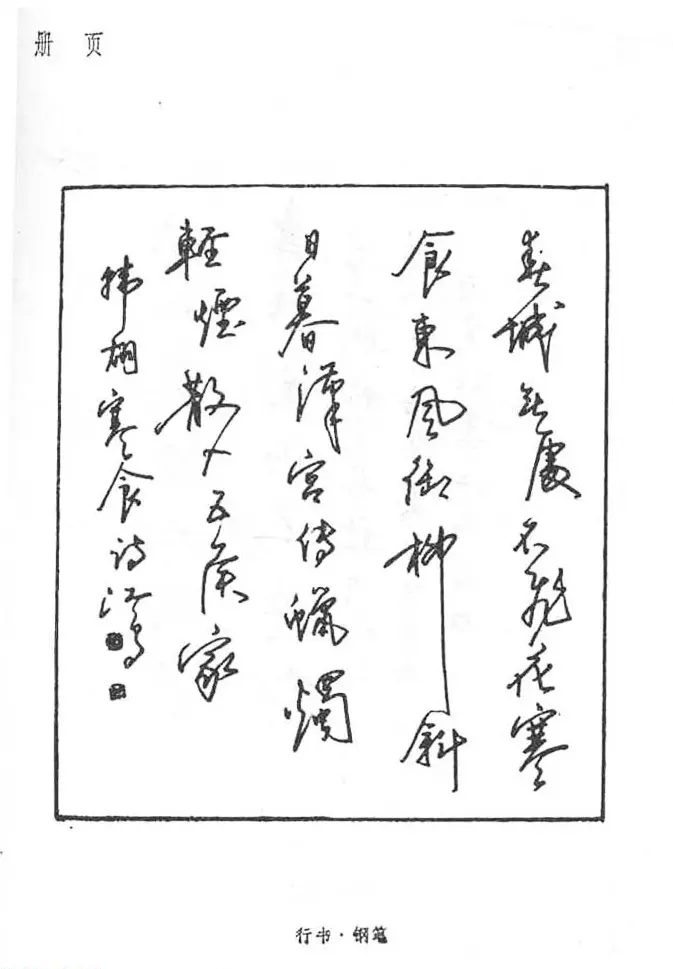 册 页
春城無處不飛花寒
食東風御柳斜
日暮漢宮傳蠟燭
輕煙散入五侯家
韩翃寒食诗
行书·钢笔